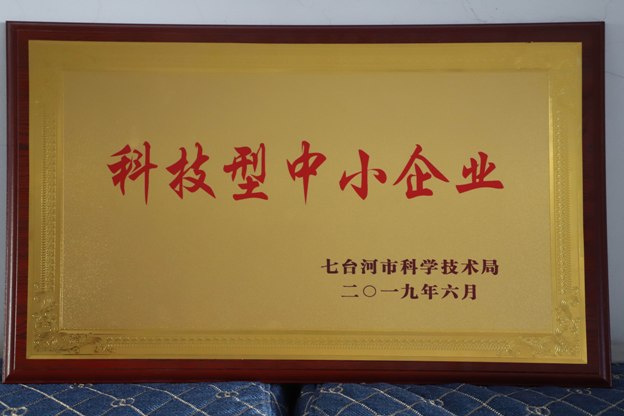 科技型中小企业
七台河市科学技术局
二〇一九年六月